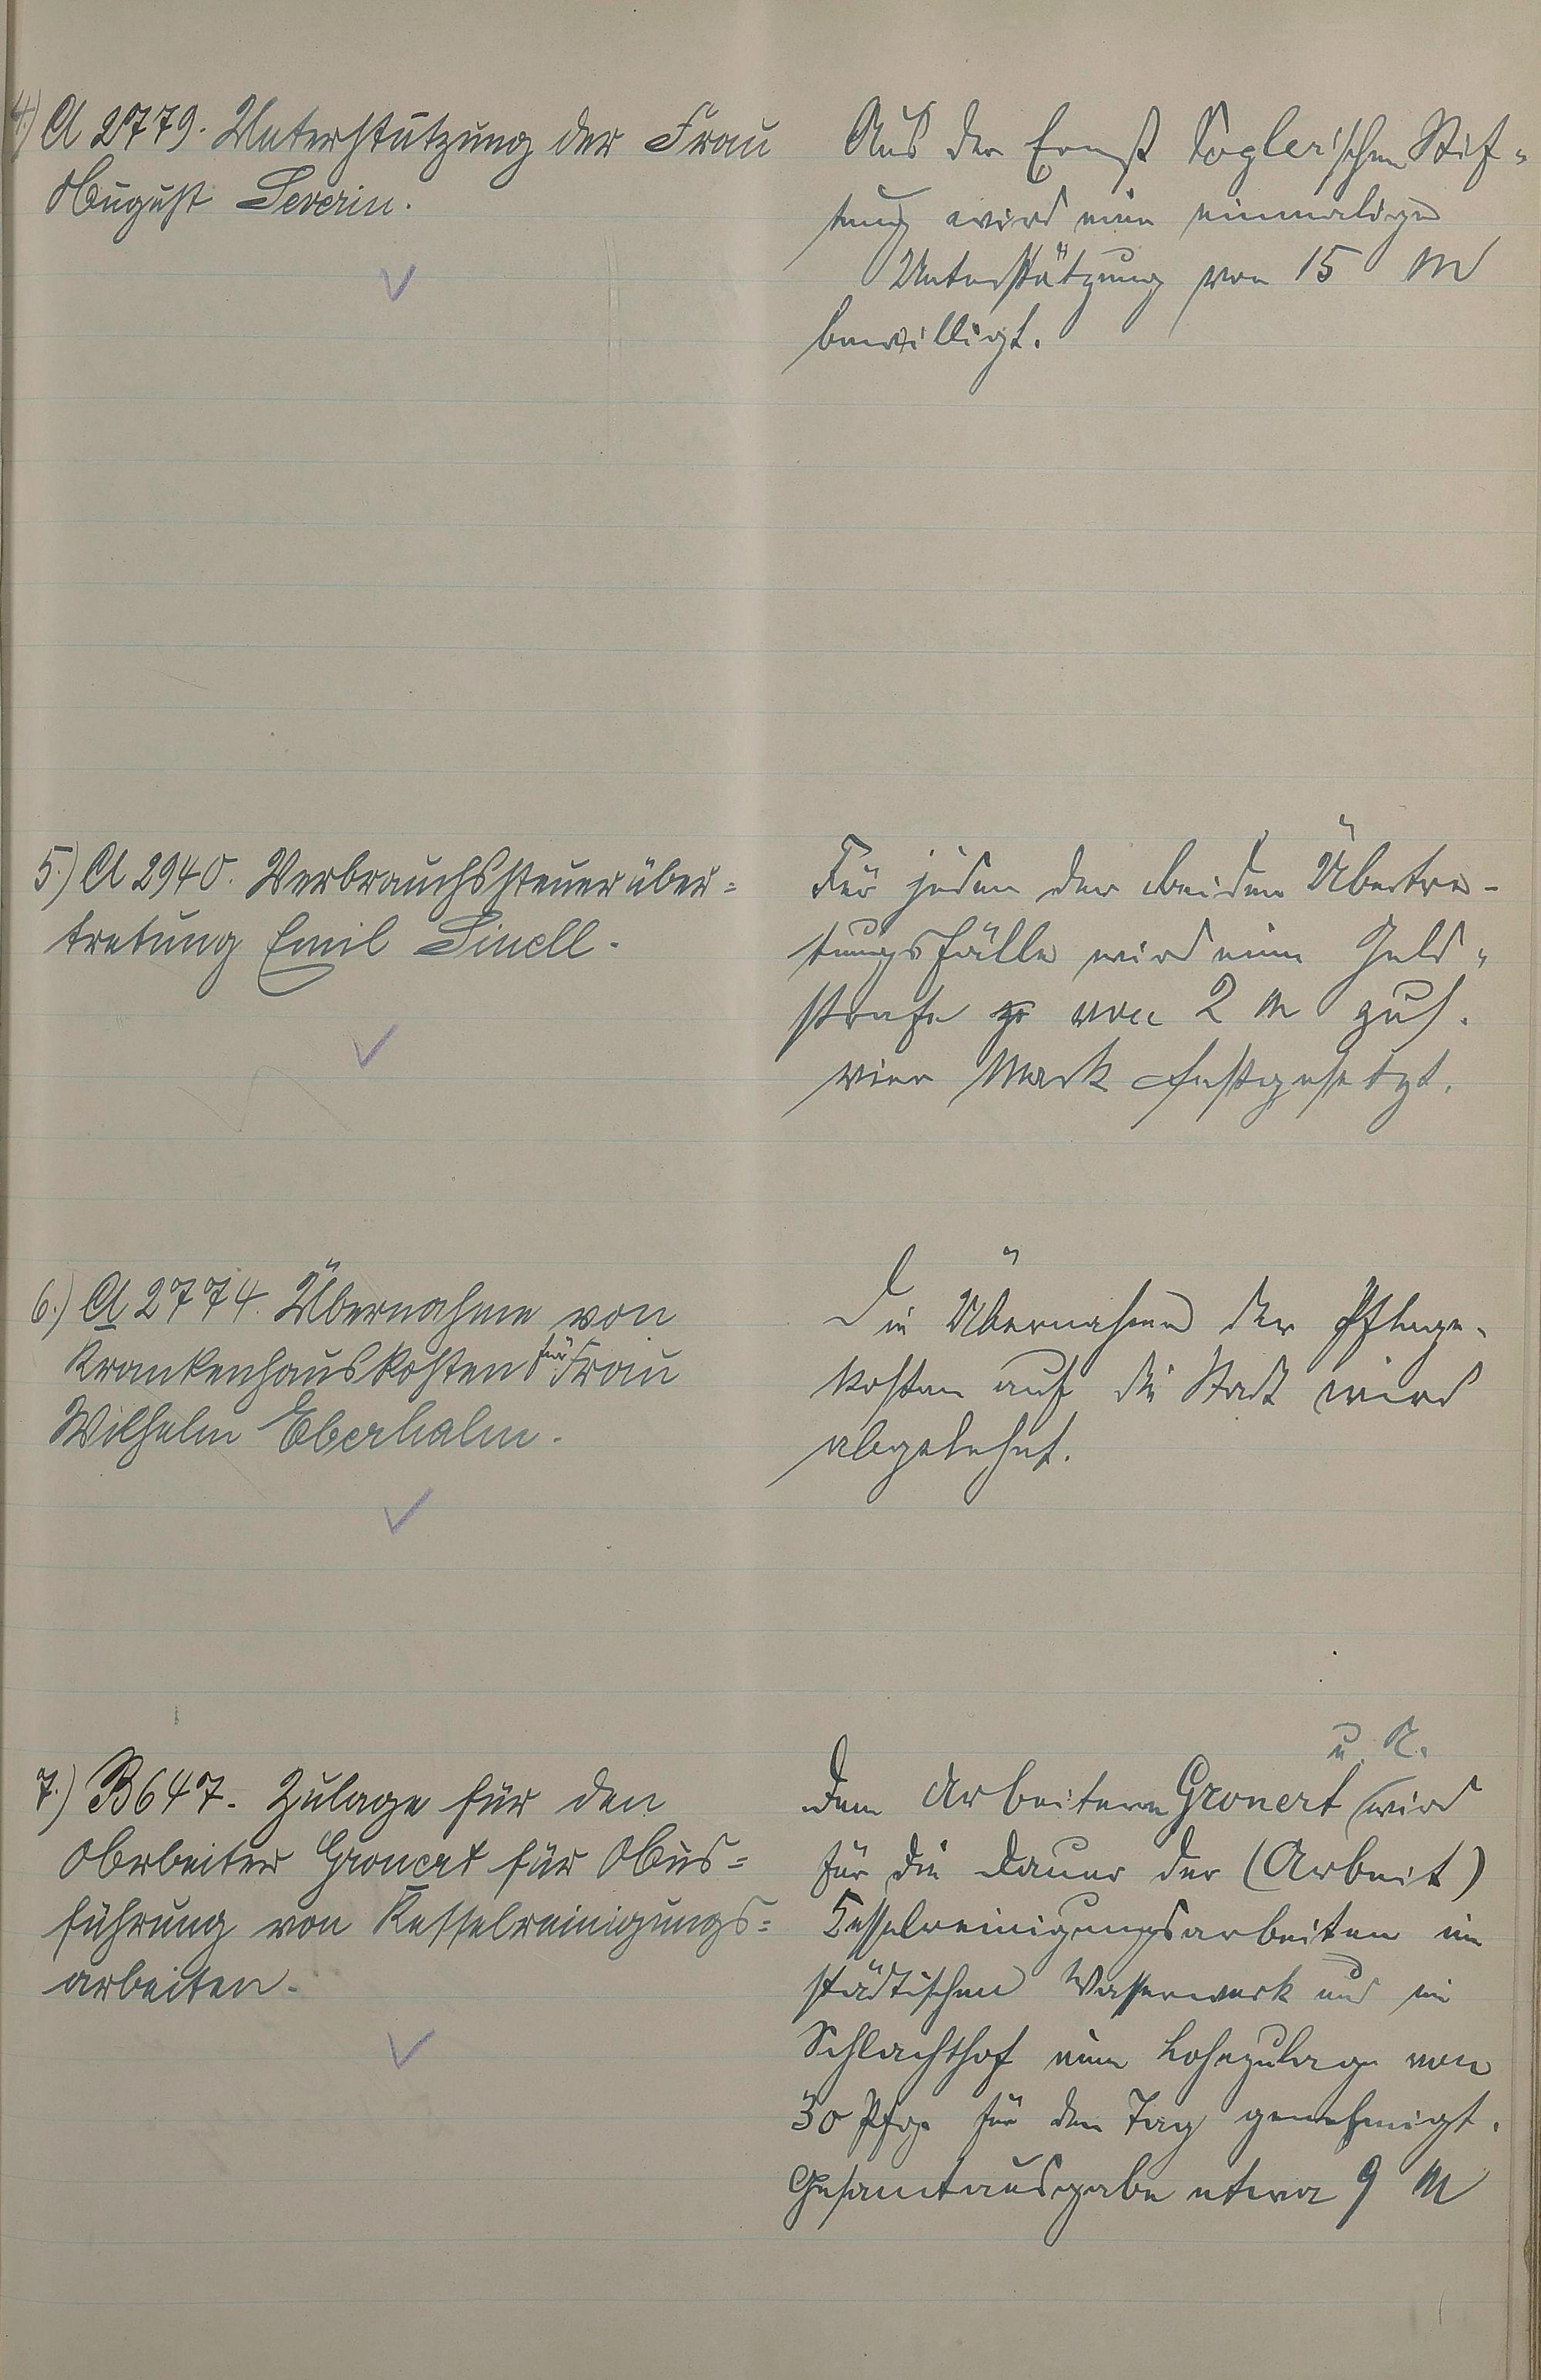 4.) A 2779. Unterstützung der Frau
August Severin.
Aus der Ernst Vogler'schen Stif-
tung wird eine einmalige
Unterstützung von 15 M
bewilligt.
5.) A 2940. Verbrauchssteuerüber=
tretung Emil Sinell.
Für jeden der beiden Übertre-
tungsfälle wird eine Geld-
strafe von 2 M zus.
vier Mark festgesetzt.
6.) A 2774. Übernahme von
Krankenhauskosten für Frau
Wilhelm Eberhalm.
Die Übernahme der Pflege-
kosten auf die Stadt wird
abgelehnt.
7.) B 647. Zulage für den
Arbeiter Gronert für Aus=
führung von Kesselreinigungs=
arbeiten.
Dem Arbeitern Gronert u. K. wird
für die Dauer der (Arbeit)
Kesselreinigungsarbeiten im
städtischen Wasserwerk und im
Schlachthof eine Lohnzulage von
30 Pfg. für den Tag genehmigt.
Gesamtausgabe etwa 9 M